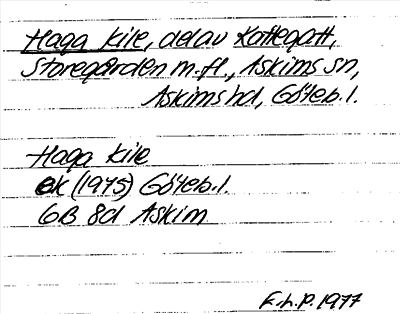 Haga kile, del av Kattegatt,
Storegården m.fl., Askims sn,
Askims hd, Göteb. l.
Haga kile
ek (1975) Göteb. l.
6B 8d Askim
F.h.p. 1977